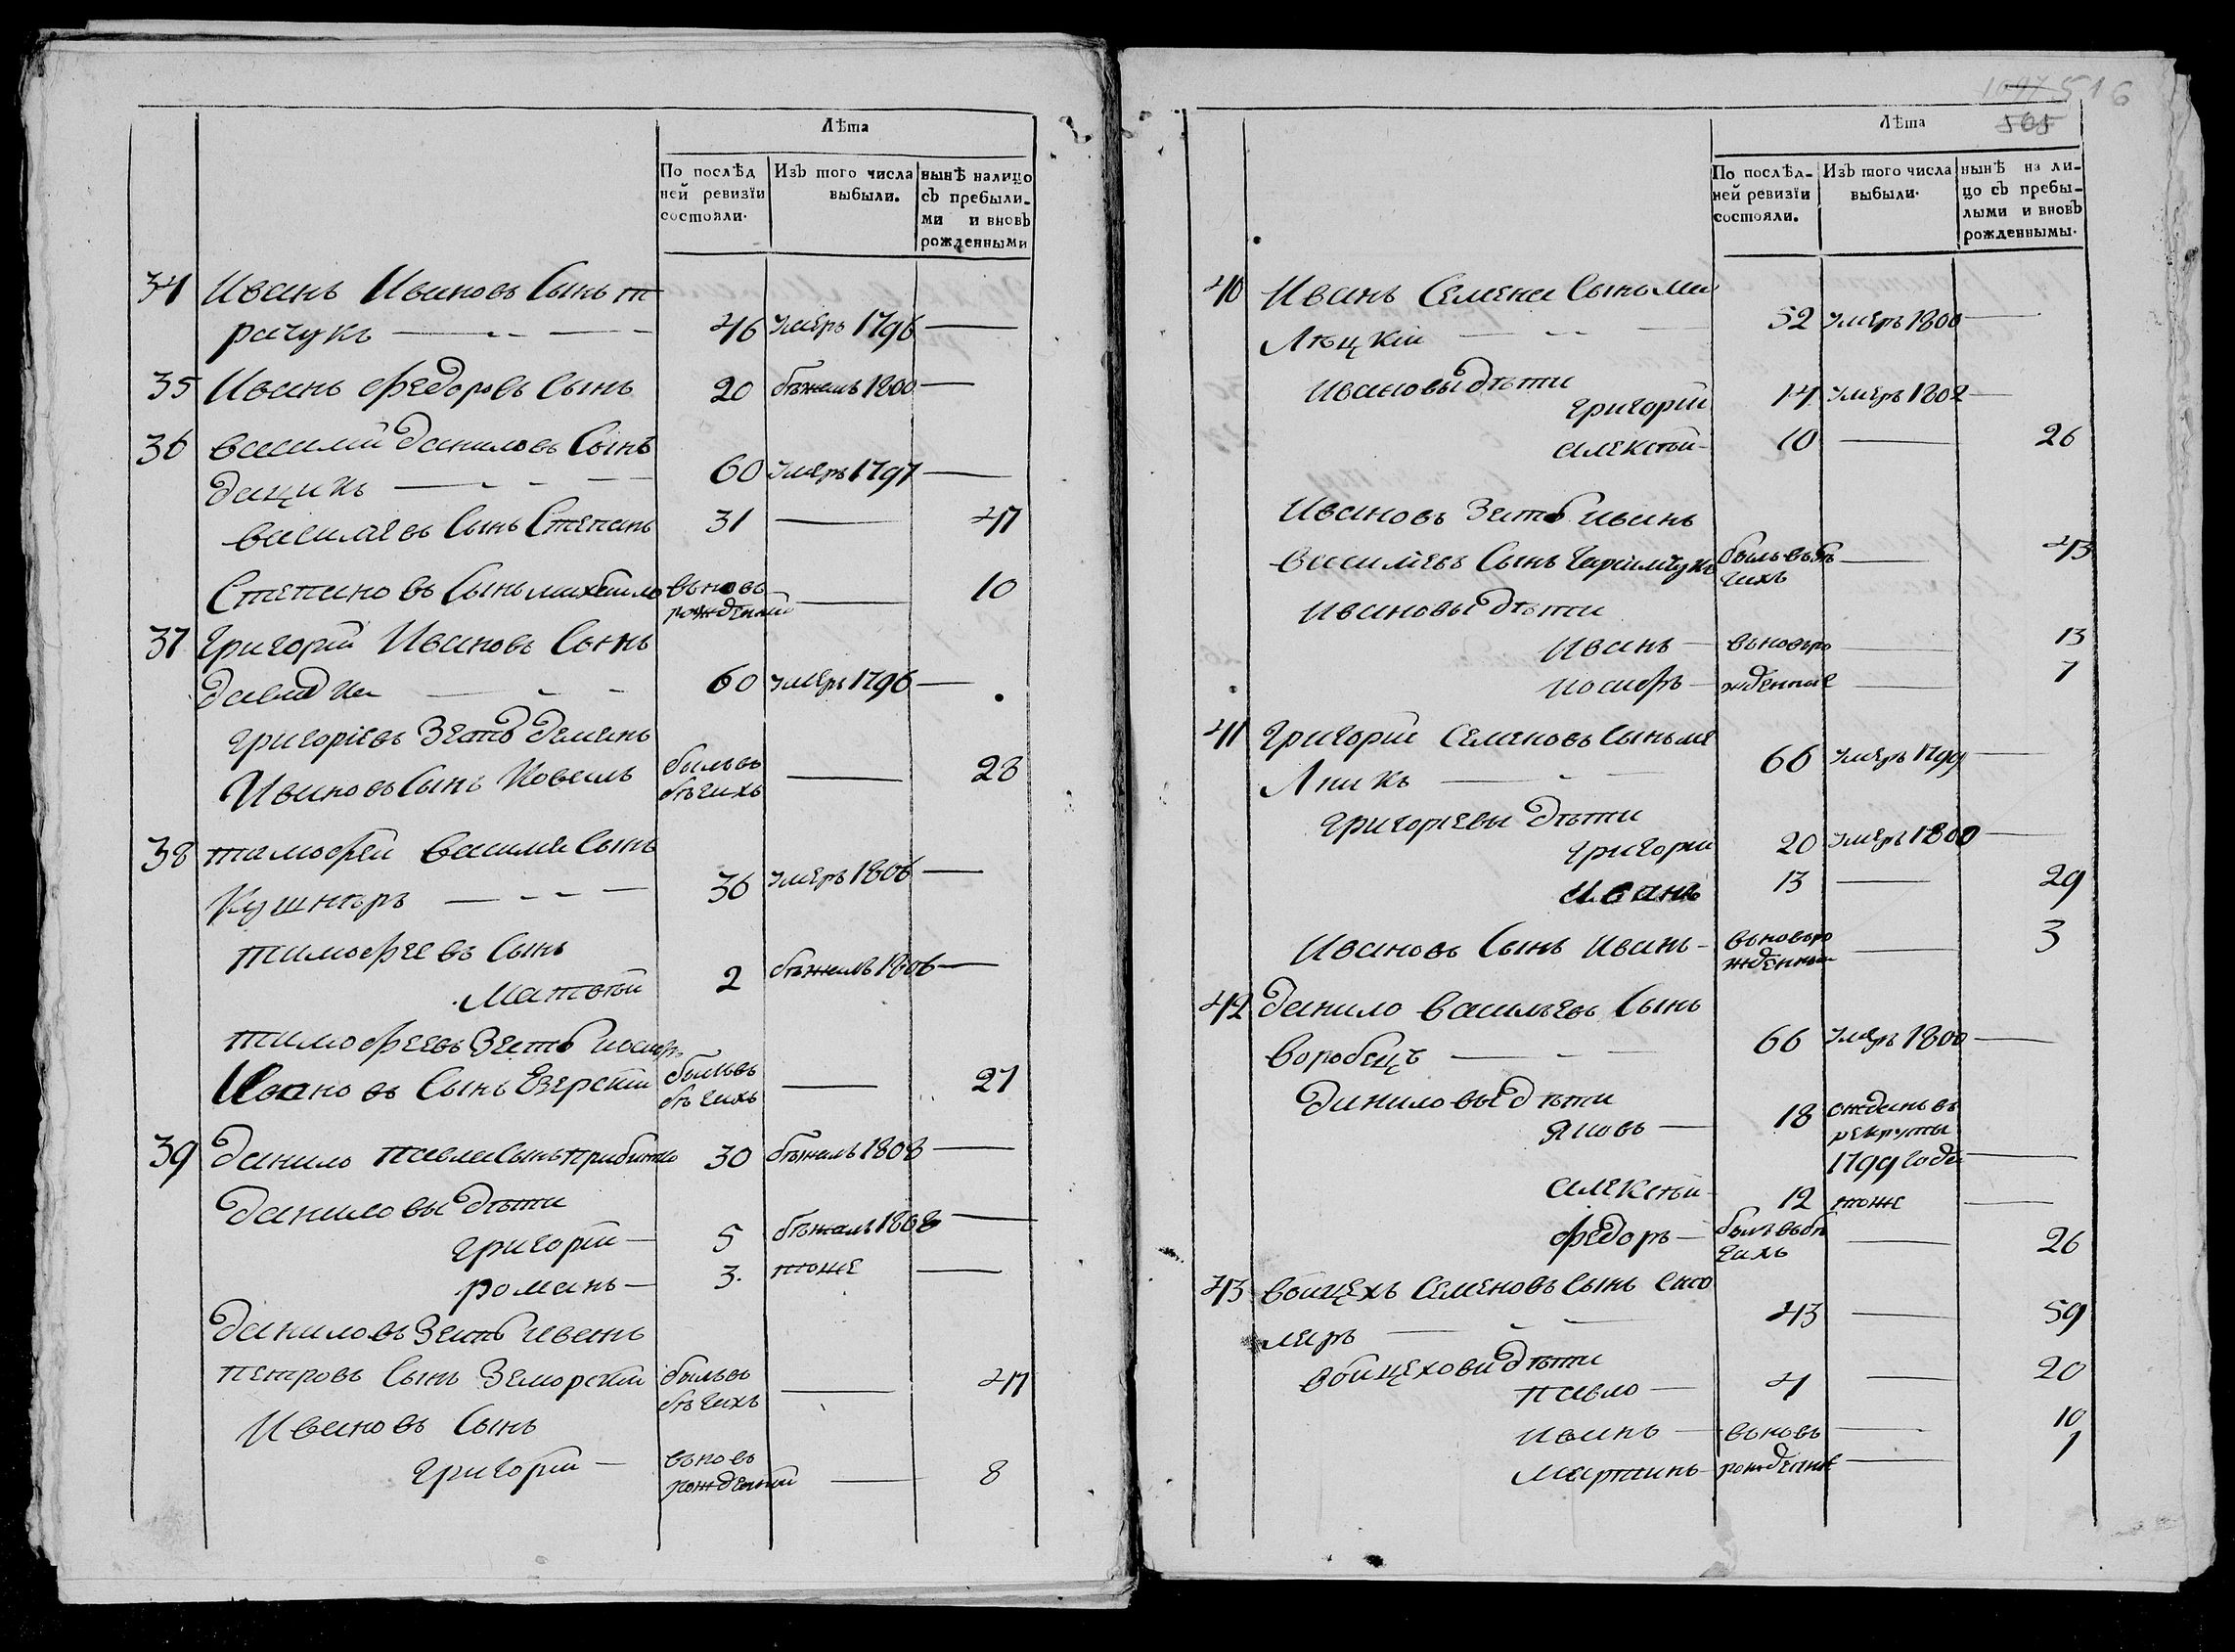 Лѣта
По послѣд
ней ревизїи
состояли.
Изъ того числа
выбыли.
нынѣ налицо
съ пребыли-
ми и вновь
рожденными
34 Иванъ Ивановъ Сынъ т
рачукъ 46 умеръ 1796
35 Иванъ Федоровъ Сынъ 20 бѣжалъ 1800
36 василий даниловъ Сынъ
дацикъ 60 умеръ 1797
василіевъ Сынъ Степанъ 31 47
Степановъ Сынъ михайло вновь рожденный 10
37 Григорий Ивановъ Сынъ
60 умеръ 1796
григоріевъ Зять
Ивановъ Сынъ Ковалъ былъ въ бѣгахъ 28
38 тимофей васила Сынъ
Кушнѣръ 36 умеръ 1806
тимофеевъ Сынъ
Матвѣй 2 бѣжалъ 1806
тимофеевъ Зять иосифъ
Ивановъ Сынъ Езерский былъ въ бѣгахъ 27
39 данило павла Сынъ 30 бѣжалъ 1808
даниловы дѣти
григорий 5 бѣжалъ 1808
романъ 3. тоже
даниловъ Зять иванъ
петровъ Сынъ Земорский былъ въ бѣгахъ 47
Ивановъ Сынъ
григорий вновь рожденный 8
1097 516
505
Лѣта
По послѣд-
ней ревизїи
состояли.
Изъ того числа
выбыли.
нынѣ на ли-
цо съ пребы-
лыми и вновь
рожденнымы.
40 Иванъ Семена Сынъ ма
лѣцкій 52 умеръ 1800
Ивановы дѣти
григорий 14 умеръ 1802
алексѣй 10 26
Ивановъ Зять иванъ
василіевъ Сынъ былъ въ бѣгахъ 43
Ивановы дѣти
Иванъ вновь ро 13
иосифъ жденные 7
41 Григорий Семеновъ Сынъ ме
лникъ 66 умеръ 1799
Григоріевы дѣти
григорий 20 умеръ 1800
иванъ 13 29
Ивановъ Сынъ иванъ вновь ро жденный 3
42 данило василіевъ Сынъ
воробецъ 66 умеръ 1800
даниловы дѣти
яковъ 18 отданъ въ
рекруты
1799 года
алексѣй 12 тоже
федоръ былъ въ бѣ гахъ 26
43 войцехъ Семеновъ Сынъ сто
ляръ 43 59
войцехови дѣти
павло 4 20
иванъ вновь 10
мартинъ рожденые 1